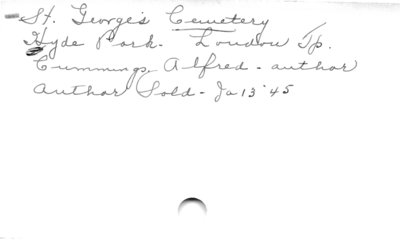 St. George's Cemetery
Hyde Park - London Tp.
Cummings, Alfred - author
Author Sold - Ja 13 '45